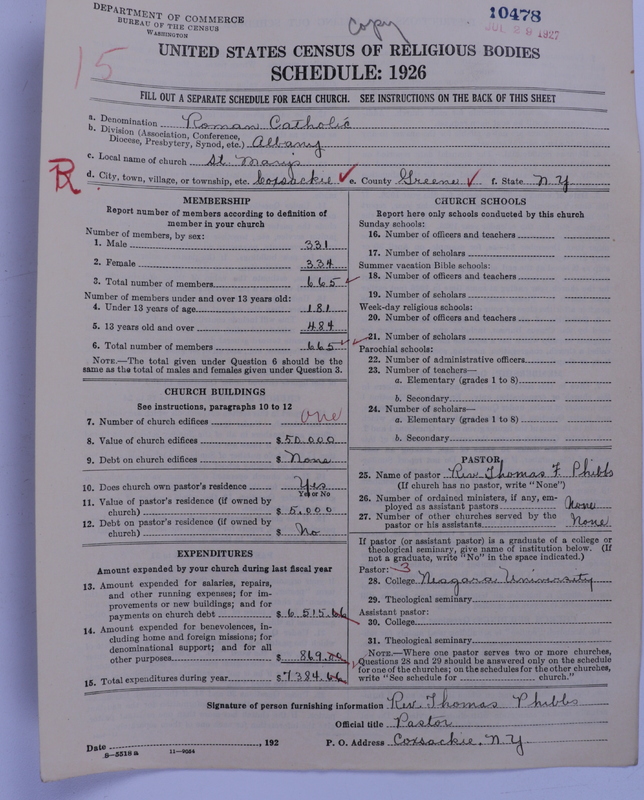 DEPARTMENT OF COMMERCE
BUREAU OF THE CENSUS
WASHINGTON
copy
10478
JUL 29 1927
15
UNITED STATES CENSUS OF RELIGIOUS BODIES
SCHEDULE: 1926
FILL OUT A SEPARATE SCHEDULE FOR EACH CHURCH. SEE INSTRUCTIONS ON THE BACK OF THIS SHEET
a. Denomination Roman Catholic
b. Division (Association, Conference, Diocese, Presbytery, Synod, etc.) Albany
c. Local name of church St. Mary's
d. City, town, village, or township, etc. Coxsackie e. County Greene f. State N.Y
MEMBERSHIP
Report number of members according to definition of
member in your church
Number of members, by sex:
1. Male 331
2. Female 334
3. Total number of members 665
Number of members under and over 13 years old:
4. Under 13 years of age 181
5. 13 years old and over 484
6. Total number of members 665
NOTE.—The total given under Question 6 should be the
same as the total of males and females given under Question 3.
CHURCH BUILDINGS
See instructions, paragraphs 10 to 12
7. Number of church edifices one
8. Value of church edifices $50.000
9. Debt on church edifices $ None
10. Does church own pastor's residence Yes
Yes or No
11. Value of pastor's residence (if owned by
church) $ 5.000
12. Debt on pastor's residence (if owned by
church) $ No
EXPENDITURES
Amount expended by your church during last fiscal year
13. Amount expended for salaries, repairs,
and other running expenses; for im-
provements or new buildings; and for
payments on church debt $ 6515.66
14. Amount expended for benevolences, in-
cluding home and foreign missions; for
denominational support; and for all
other purposes $ 869.00
15. Total expenditures during year $7384.66
CHURCH SCHOOLS
Report here only schools conducted by this church
Sunday schools:
16. Number of officers and teachers
17. Number of scholars
Summer vacation Bible schools:
18. Number of officers and teachers
19. Number of scholars
Week-day religious schools:
20. Number of officers and teachers
21. Number of scholars
Parochial schools:
22. Number of administrative officers
23. Number of teachers—
a. Elementary (grades 1 to 8)
b. Secondary
24. Number of scholars—
a. Elementary (grades 1 to 8)
b. Secondary
PASTOR
25. Name of pastor Rev. Thomas F. Phibbs
(If church has no pastor, write "None")
26. Number of ordained ministers, if any, em-
ployed as assistant pastors None
27. Number of other churches served by the
pastor or his assistants None
If pastor (or assistant pastor) is a graduate of a college or
theological seminary, give name of institution below. (If
not a graduate, write "No" in the space indicated.)
Pastor: 3
28. College Niagara University
29. Theological seminary
Assistant pastor:
30. College
31. Theological seminary
NOTE.—Where one pastor serves two or more churches,
Questions 28 and 29 should be answered only on the schedule
for one of the churches; on the schedules for the other churches,
write "See schedule for church."
Signature of person furnishing information Rev. Thomas Phibbs
Official title Pastor
Date , 192 P. O. Address Coxsackie, N.Y
8-5518a 11-9054